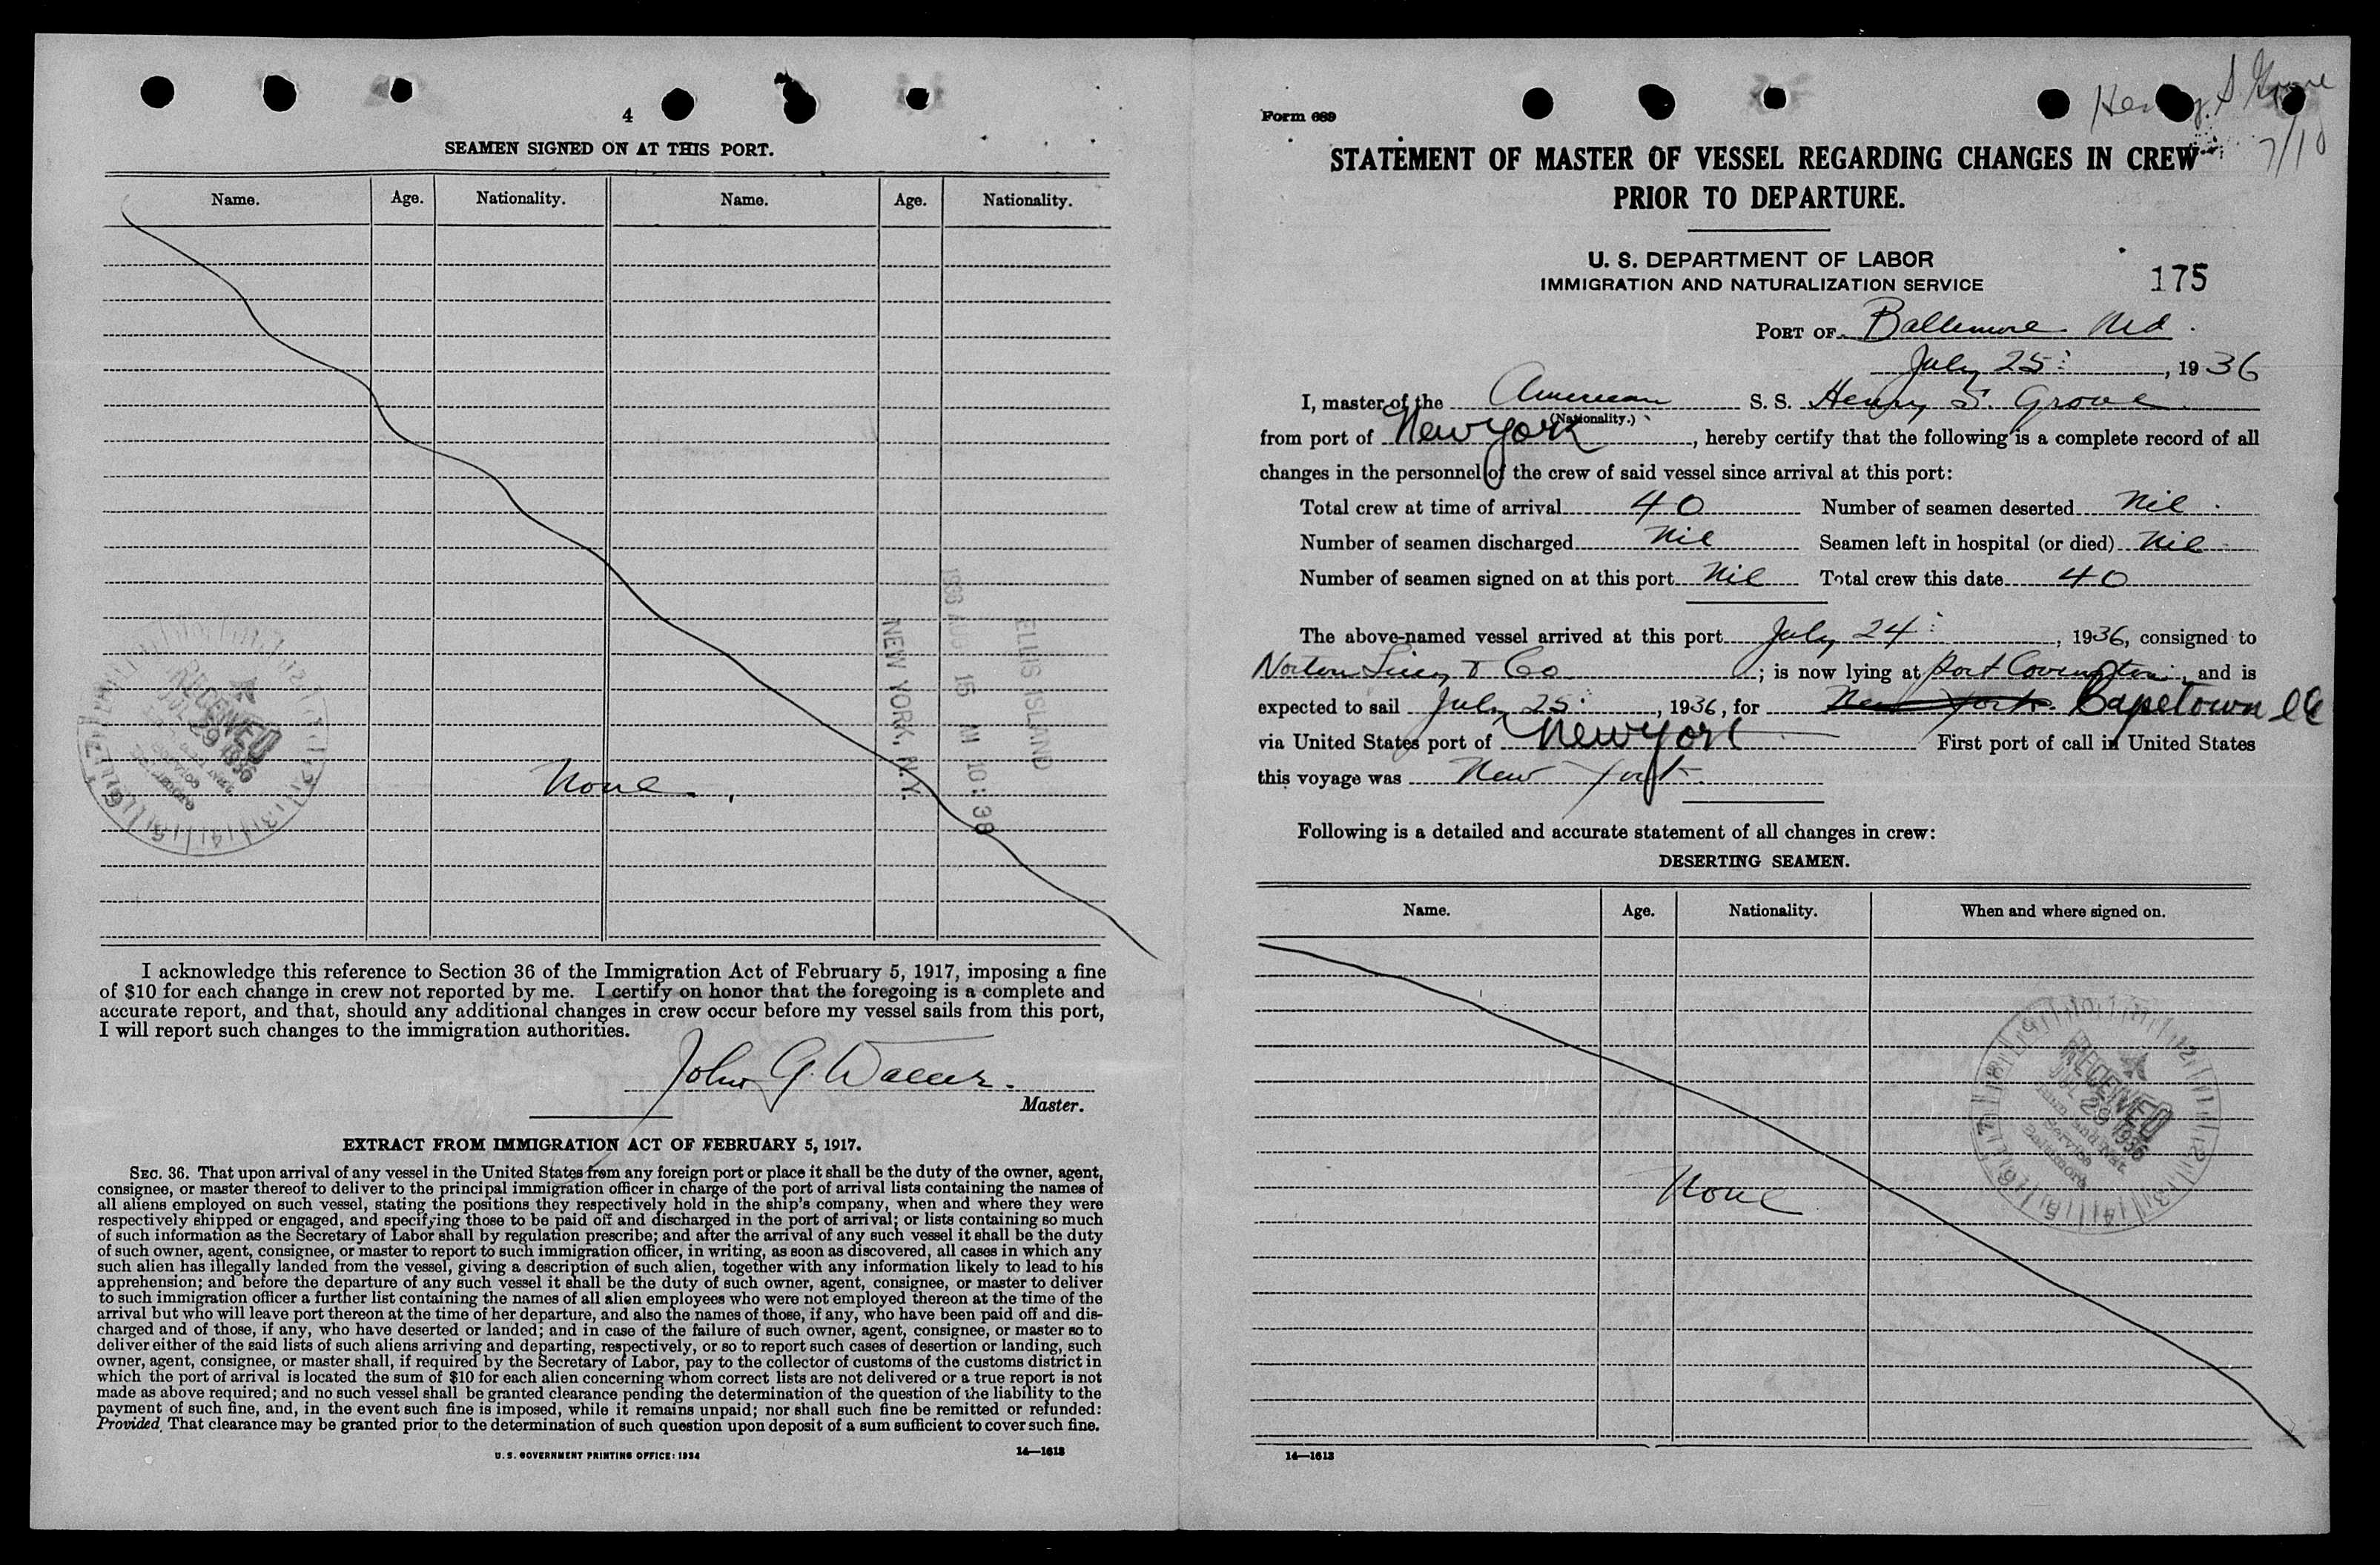 4
SEAMEN SIGNED ON AT THIS PORT.
Name. Age. Nationality. Name. Age. Nationality.
None.
NEW YORK, N.Y.
AUG 15 10:38
ELLIS ISLAND
RECEIVED
JUL 29 1936
Service
Baltimore
I acknowledge this reference to Section 36 of the Immigration Act of February 5, 1917, imposing a fine
of $10 for each change in crew not reported by me. I certify on honor that the foregoing is a complete and
accurate report, and that, should any additional changes in crew occur before my vessel sails from this port,
I will report such changes to the immigration authorities.
John G.
Master.
EXTRACT FROM IMMIGRATION ACT OF FEBRUARY 5, 1917.
SEC. 36. That upon arrival of any vessel in the United States from any foreign port or place it shall be the duty of the owner, agent,
consignee, or master thereof to deliver to the principal immigration officer in charge of the port of arrival lists containing the names of
all aliens employed on such vessel, stating the positions they respectively hold in the ship's company, when and where they were
respectively shipped or engaged, and specifying those to be paid off and discharged in the port of arrival; or lists containing so much
of such information as the Secretary of Labor shall by regulation prescribe; and after the arrival of any such vessel it shall be the duty
of such owner, agent, consignee, or master to report to such immigration officer, in writing, as soon as discovered, all cases in which any
such alien has illegally landed from the vessel, giving a description of such alien, together with any information likely to lead to his
apprehension; and before the departure of any such vessel it shall be the duty of such owner, agent, consignee, or master to deliver
to such immigration officer a further list containing the names of all alien employees who were not employed thereon at the time of the
arrival but who will leave port thereon at the time of her departure, and also the names of those, if any, who have been paid off and dis-
charged and of those, if any, who have deserted or landed; and in case of the failure of such owner, agent, consignee, or master so to
deliver either of the said lists of such aliens arriving and departing, respectively, or so to report such cases of desertion or landing, such
owner, agent, consignee, or master shall, if required by the Secretary of Labor, pay to the collector of customs of the customs district in
which the port of arrival is located the sum of $10 for each alien concerning whom correct lists are not delivered or a true report is not
made as above required; and no such vessel shall be granted clearance pending the determination of the question of the liability to the
payment of such fine, and, in the event such fine is imposed, while it remains unpaid; nor shall such fine be remitted or refunded:
Provided, That clearance may be granted prior to the determination of such question upon deposit of a sum sufficient to cover such fine.
U. S. GOVERNMENT PRINTING OFFICE: 1934 14—1613
Henry S. Grove
Form 689
STATEMENT OF MASTER OF VESSEL REGARDING CHANGES IN CREW
PRIOR TO DEPARTURE.
U. S. DEPARTMENT OF LABOR
IMMIGRATION AND NATURALIZATION SERVICE
175
PORT OF Baltimore Md.
July 25, 1936
I, master of the American S. S. Henry S. Grove
(Nationality.)
from port of New York, hereby certify that the following is a complete record of all
changes in the personnel of the crew of said vessel since arrival at this port:
Total crew at time of arrival 40 Number of seamen deserted Nil
Number of seamen discharged Nil Seamen left in hospital (or died) Nil
Number of seamen signed on at this port Nil Total crew this date 40
The above-named vessel arrived at this port July 24, 1936, consigned to
Norton Lilly & Co; is now lying at Port Covington, and is
expected to sail July 25, 1936, for New York Capetown
via United States port of New York First port of call in United States
this voyage was New York
Following is a detailed and accurate statement of all changes in crew:
DESERTING SEAMEN.
Name. Age. Nationality. When and where signed on.
None
RECEIVED
JUL 29 1936
Immi and Nat.
Service
Baltimore
14—1613